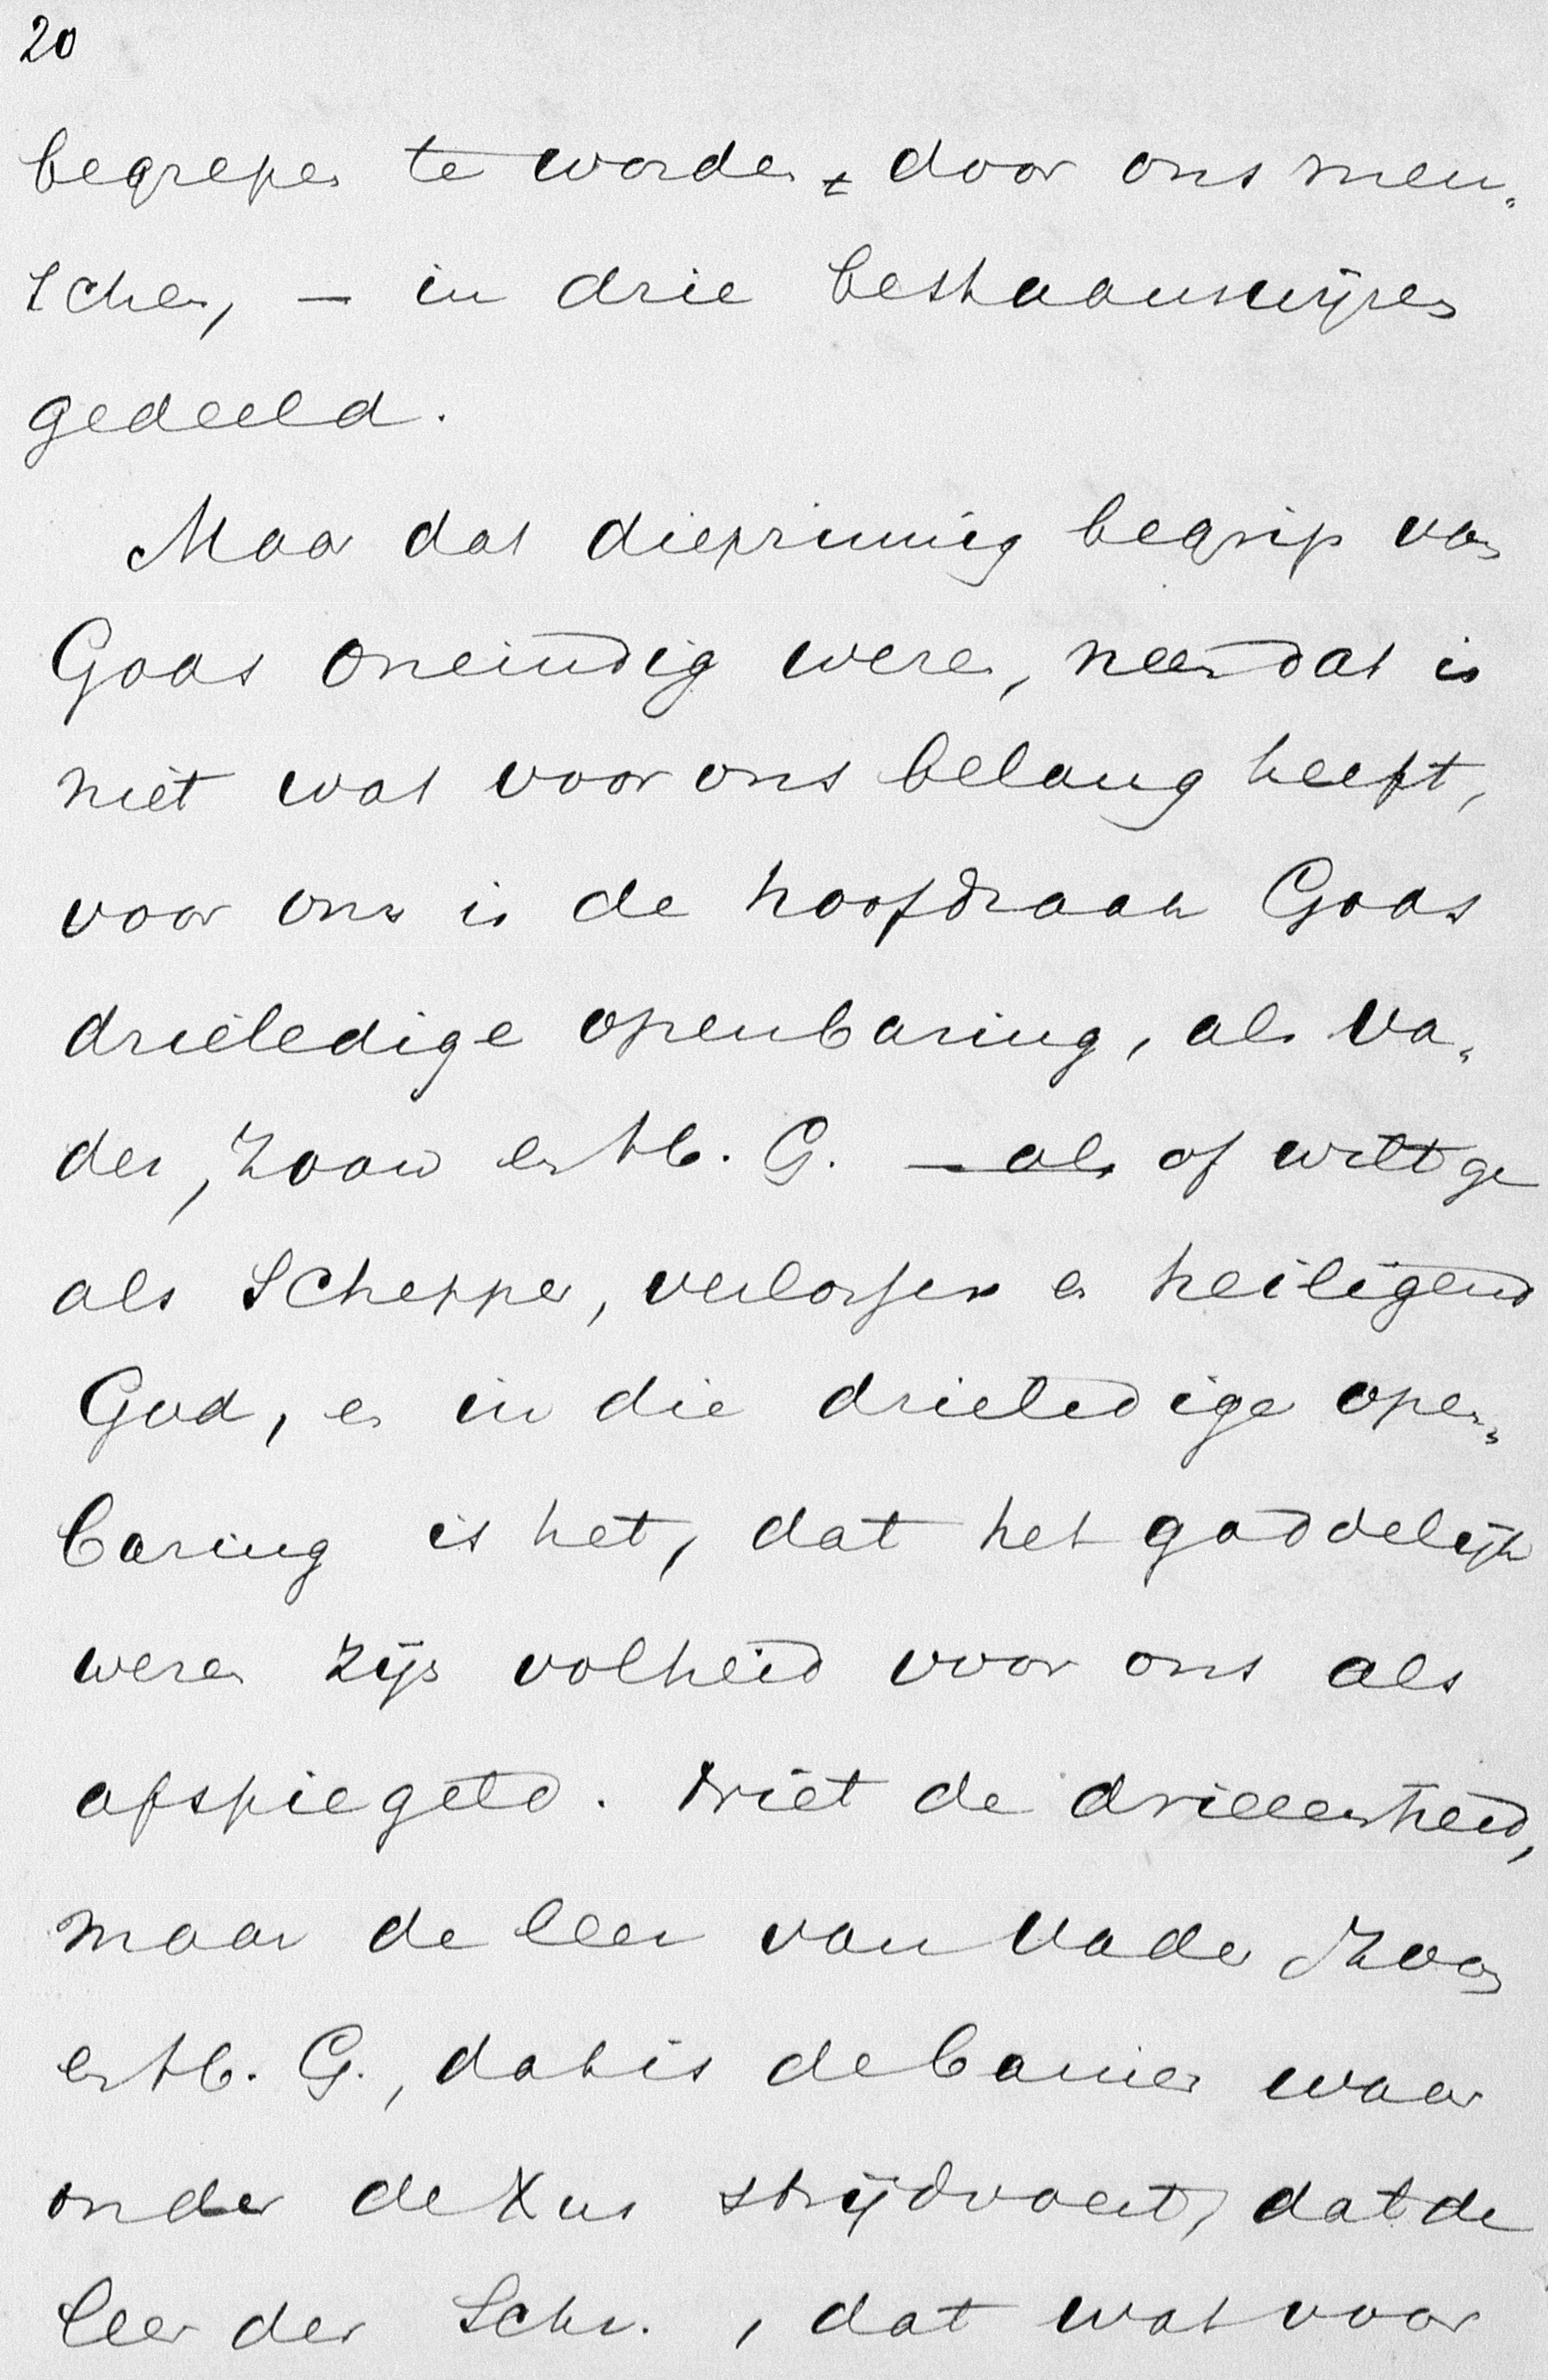 20
begrepen te worden door ons men„
schen, – in drie bestaanswijzen
gedeeld.
Maar dat diepzinnig begrip van
Gods oneindig wezen, neen dat is
niet wat voor ons belang heeft,
voor ons is de hoofdzaak Gods
drieledige openbaring, als Va„
der, Zoon en H. G. – als of wilt ge
als Schepper, verlosser en heiligend
God, en in die drieledige open„
baring is het, dat het goddelijk
wezen zijn volheid voor ons als
afspiegeld. Niet de drieeenheid,
maar de leer van Vader Zoon
en H. G., dat is de banier waar
onder de Xus strijd voert, dat de
leer der Schr. , dat wat voor